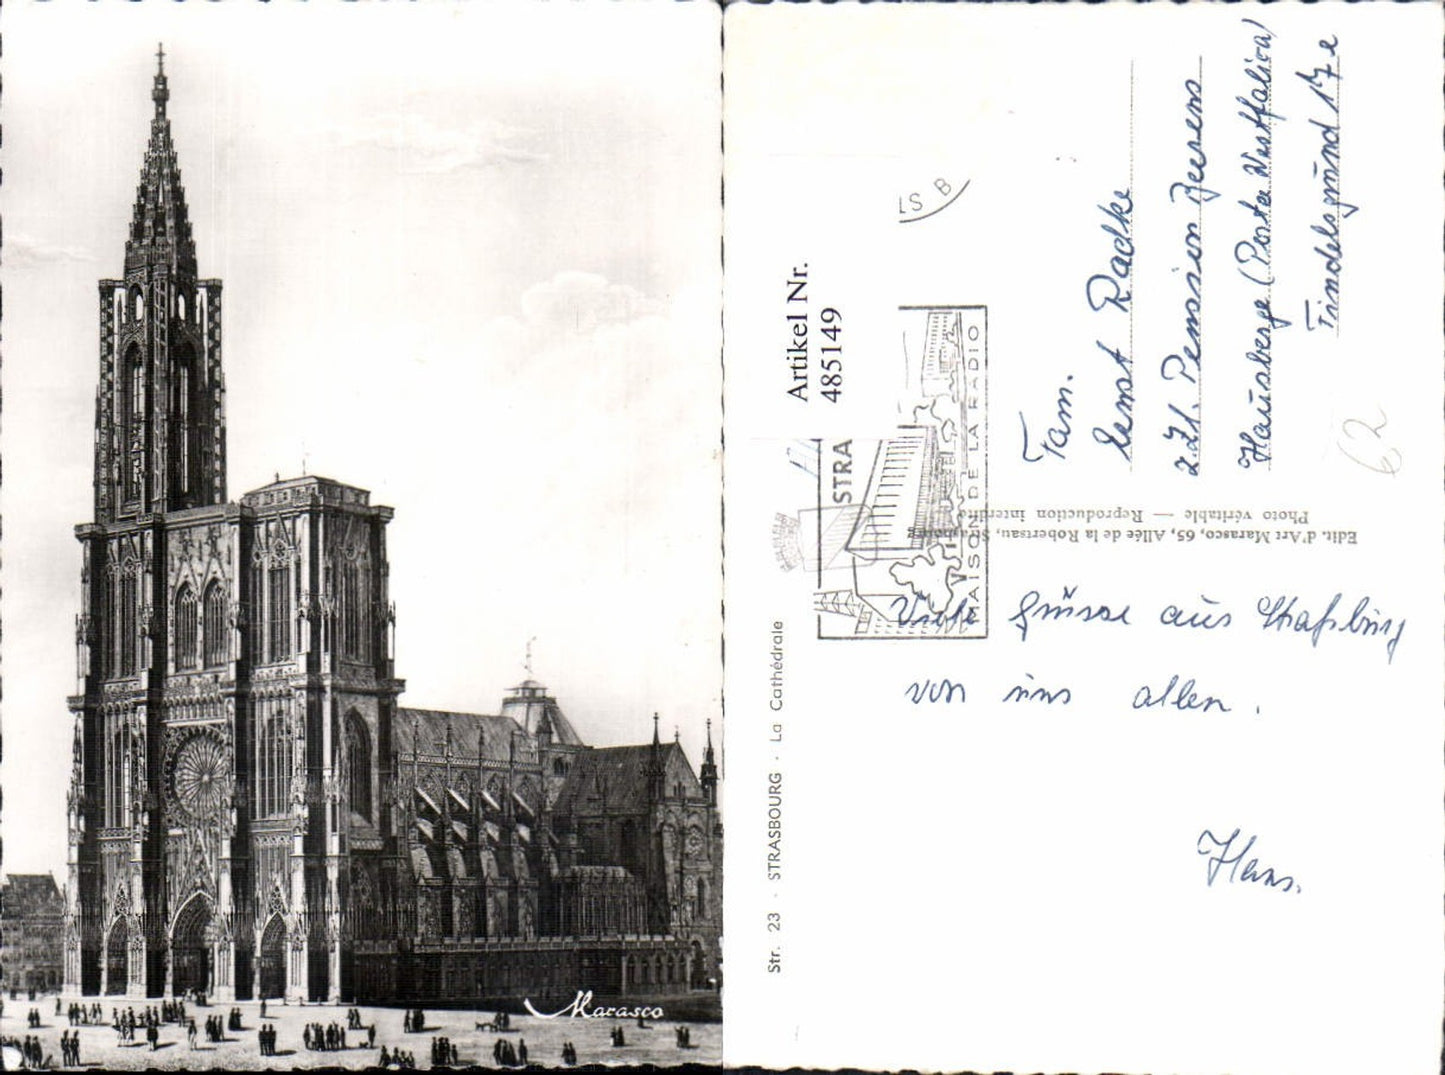 Marasco
Str. 23 · STRASBOURG · La Cathédrale
Artikel Nr.
485149
LS B
STRA
MAISON DE LA RADIO
Edit. d'Art Marasco, 65, Allée de la Robertsau, Strasbourg
Photo véritable — Reproduction interdite
Fam.
Ernst Radke
z. Zt. Pension Beerens
Hausberge (Porta Westfalica)
Findelsgrund 17 e
62
Viele Grüsse aus Straßburg
von uns allen.
Hans.